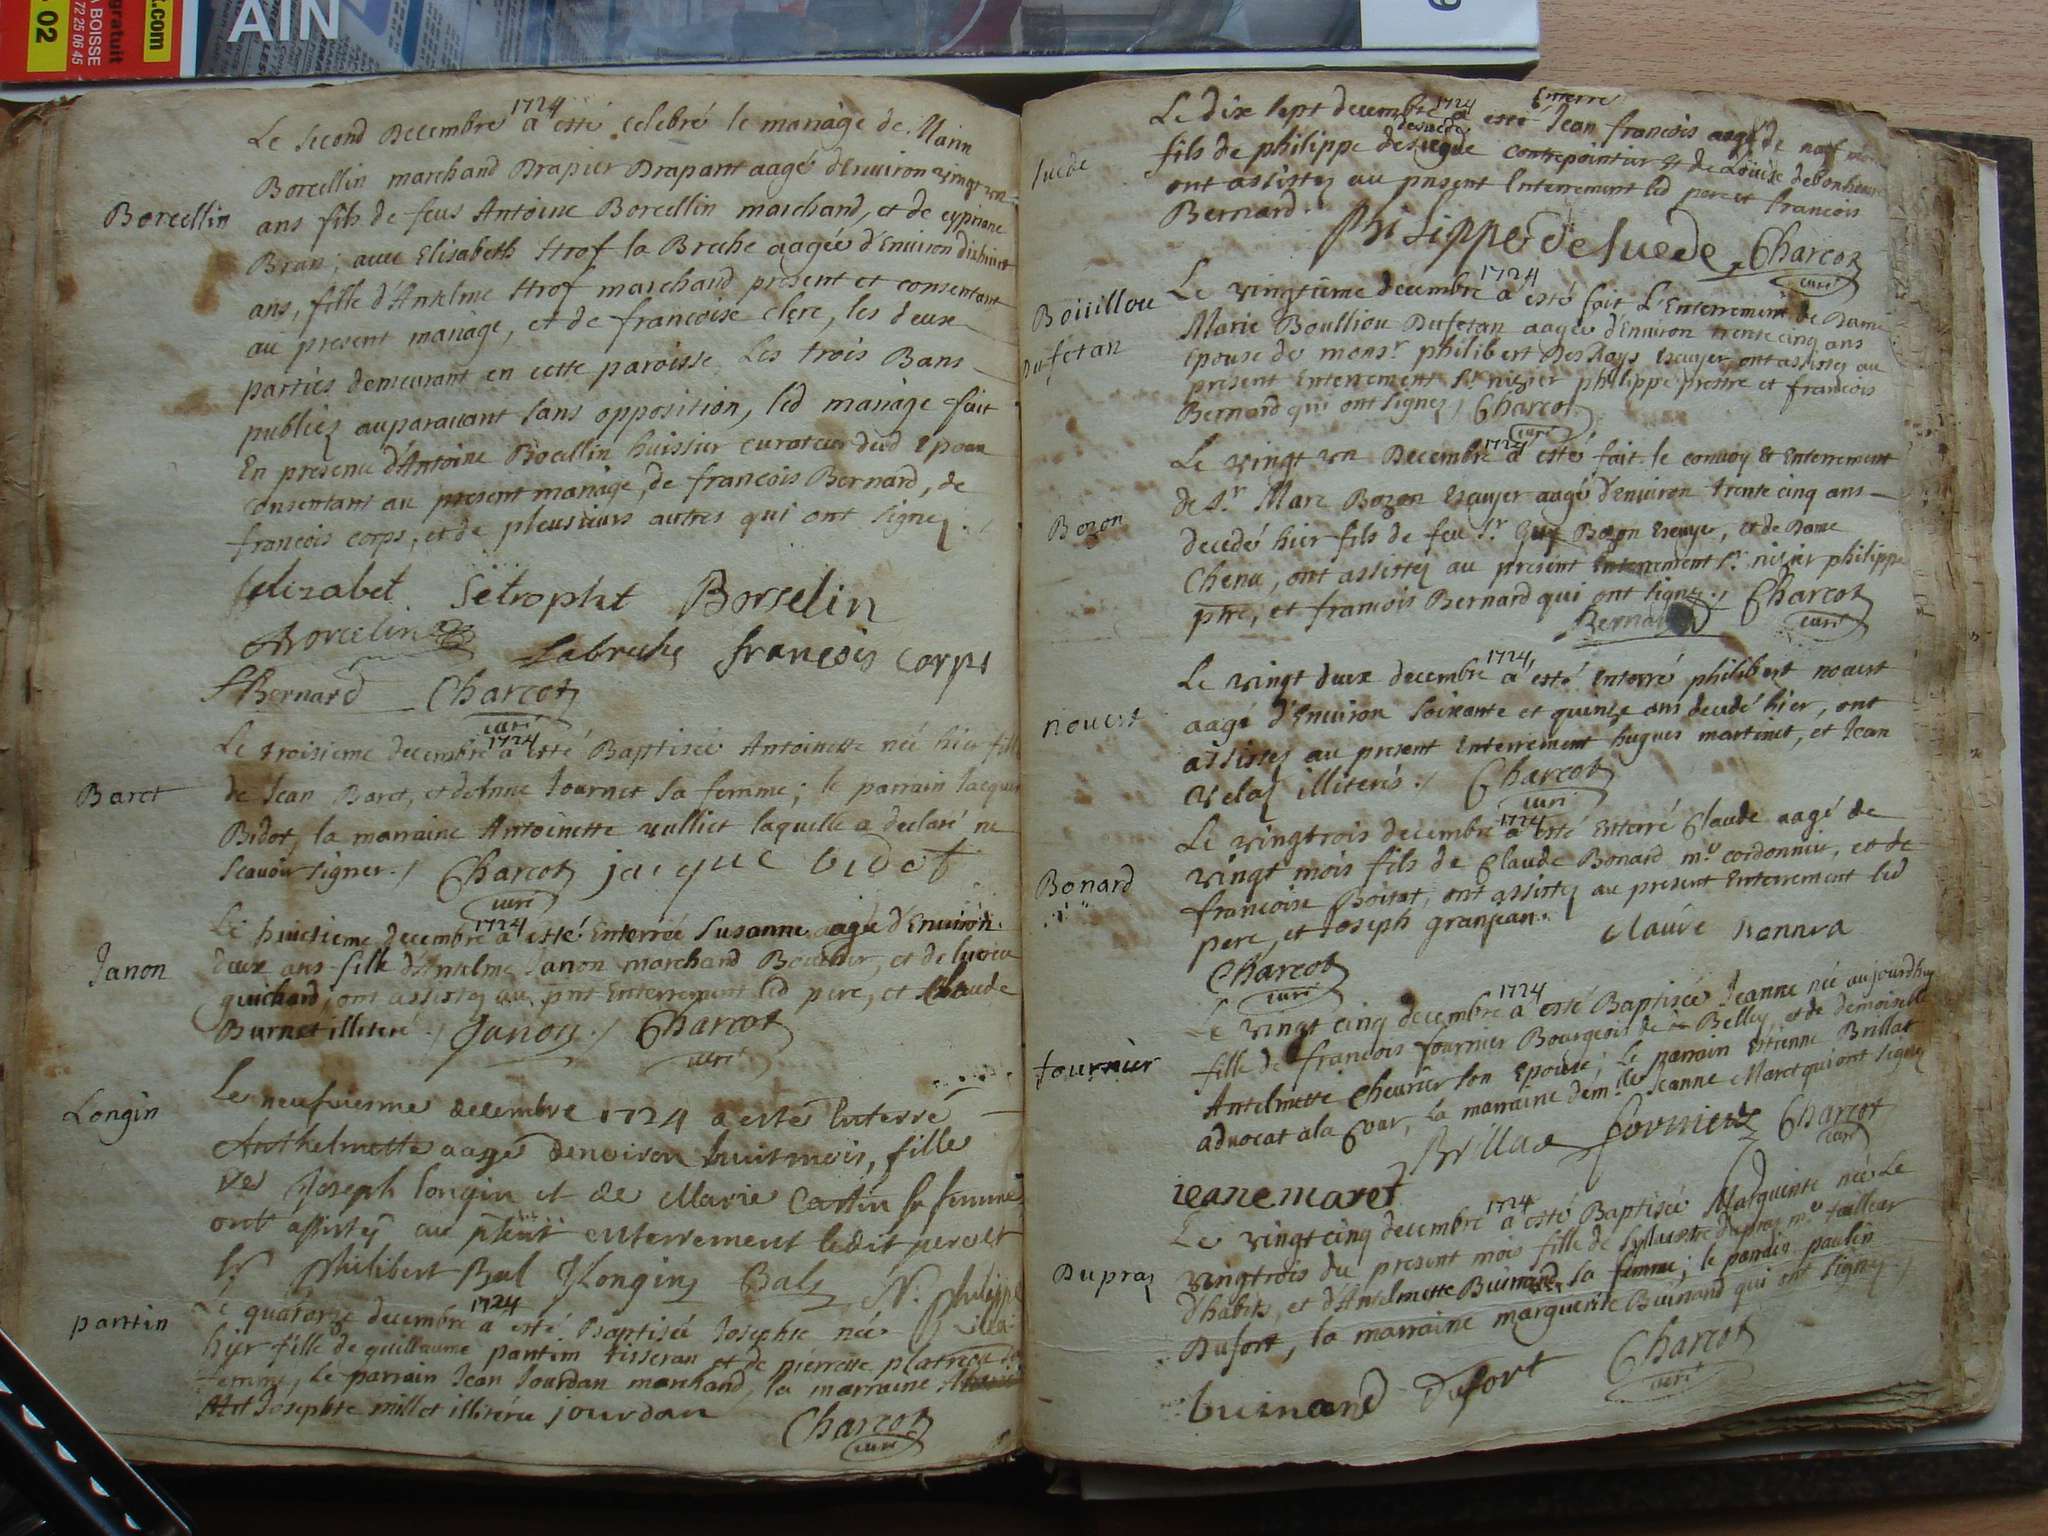 AIN
02
gratuit
.com
72 25 06 45
A BOISSE
Borcellin
Le second Decembre 1724 a esté celebré le mariage de Marin
Borcellin marchand Drapier Drapant aagé d'Environ vingt un
ans fils de feus Antoine Borcellin marchand, et de
Bran; avec Elisabeth Strof la Breche aagée d'Environ dixhuit
ans, fille d'Antelme Strof marchand present et consentant
au present mariage, et de francoise clerc, les deux
parties demeurant en cette paroisse. Les trois Bans
publiez auparavant sans opposition, led mariage fait
En presence d'Antoine Bocellin huissier curateur dud Epoux
consentant au present mariage, de francois Bernard, de
francois corps, et de pleusieurs autres qui ont signez
Elizabet Setropht Borselin
Borcelin Labreche françois corps
f Bernard Charcot
curé
Baret
Le troisieme decembre 1724 a esté Baptisée Antoinette née hier fille
de Jean Baret, et d'Anne Journet sa femme; le parrain Jacques
Bidot, la marraine Antoinette vulliet laquelle a declaré ne
scavoir signer./ Charcot jacque bidot
curé
Janon
Le huictieme decembre 1724 a esté Enterrée Susanne aagée d'Environ
deux ans fille d'Antelme Janon marchand Boucher, et de
guichard, ont assistez au pnt Enterrement led pere, et Claude
Burnet illiteré./ Janon./ Charcot
curé
Longin
Le neufviesme decembre 1724 a esté Enterré
Anthelmette aagé denviron huit mois, fille
de Joseph longin et de Marie Cartin sa femme
ont assistez au pnt enterrement ledit pere et
Philibert Bal JLongin Bal N. philippe
pantin
Le quatorze decembre 1724 a esté Baptisée Josephte née
hier fille de guillaume pantin tisseran et de pierrette platret sa
femme, Le parrain Jean Jourdan marchand, la marraine
Josephte millet illiterée jourdan Charcot
curé
suede
Le dix sept decembre 1724 a esté Enterré Jean francois aagé de neuf mois
fils de philippe desuede contrepointier et de Louise debonheure
ont assistez au present Enterrement led pere et francois
Bernard.
philippe de suede Charcot
curé
Bouillou
Dufetan
Le vingtieme decembre 1724 a esté fait L'Enterrement de Dame
Marie Boulliou Dufetan aagée d'Environ trente cinq ans
Epouse de monsr philibert Des Rays Escuyer ont assistez au
present Enterrement Sr nisier philippe prettre et francois
Bernard qui ont signez / Charcot
curé
Bozon
Le vingt un Decembre 1724 a esté fait le convoy et Enterrement
de Sr Marc Bozon Escuyer aagé d'Environ trente cinq ans
decedé hier fils de feu Sr Guy Bozon Escuye, et de Dame
Chenu, ont assistez au present Enterrement Sr nisier philippe
ptre, et francois Bernard qui ont signez./ Charcot
Bernard curé
nouert
Le vingt deux decembre 1724 a esté Enterré philibert nouert
aagé d'Environ soixante et quinze ans decedé hier, ont
assistez au present Enterrement hugues martinet, et Jean
velas illiterés./ Charcot
curé
Bonard
Le vingtrois decembre 1724 a esté Enterré Claude aagé de
vingt mois fils de Claude Bonard me cordonnier, et de
francoise Boitat, ont assistez au present Enterrement led
pere, et Joseph granjean. Claude Bonnra
Charcot
curé
fournier
Le vingt cinq decembre 1724 a esté Baptisée Jeanne née aujourdhuy
fille de francois fournier Bourgeois de Belley, et de demoiselle
Antelmette Chevrier son Epouse; Le parrain Estienne Brillat
advocat a la Cour, La marraine demlle Jeanne Maret qui ont signez
Brillat fornier Charcot
curé
jeane maret
Dupraz
Le vingt cinq decembre 1724 a esté Baptisée Marguerite née Le
vingtrois du present mois fille de Sylvestre dupraz me tailleur
d'habits, et d'Antelmette Buinand sa femme; le parrain paulin
Dufort, la marraine marguerite Buinand qui ont signez./
buinand dufort Charcot
curé